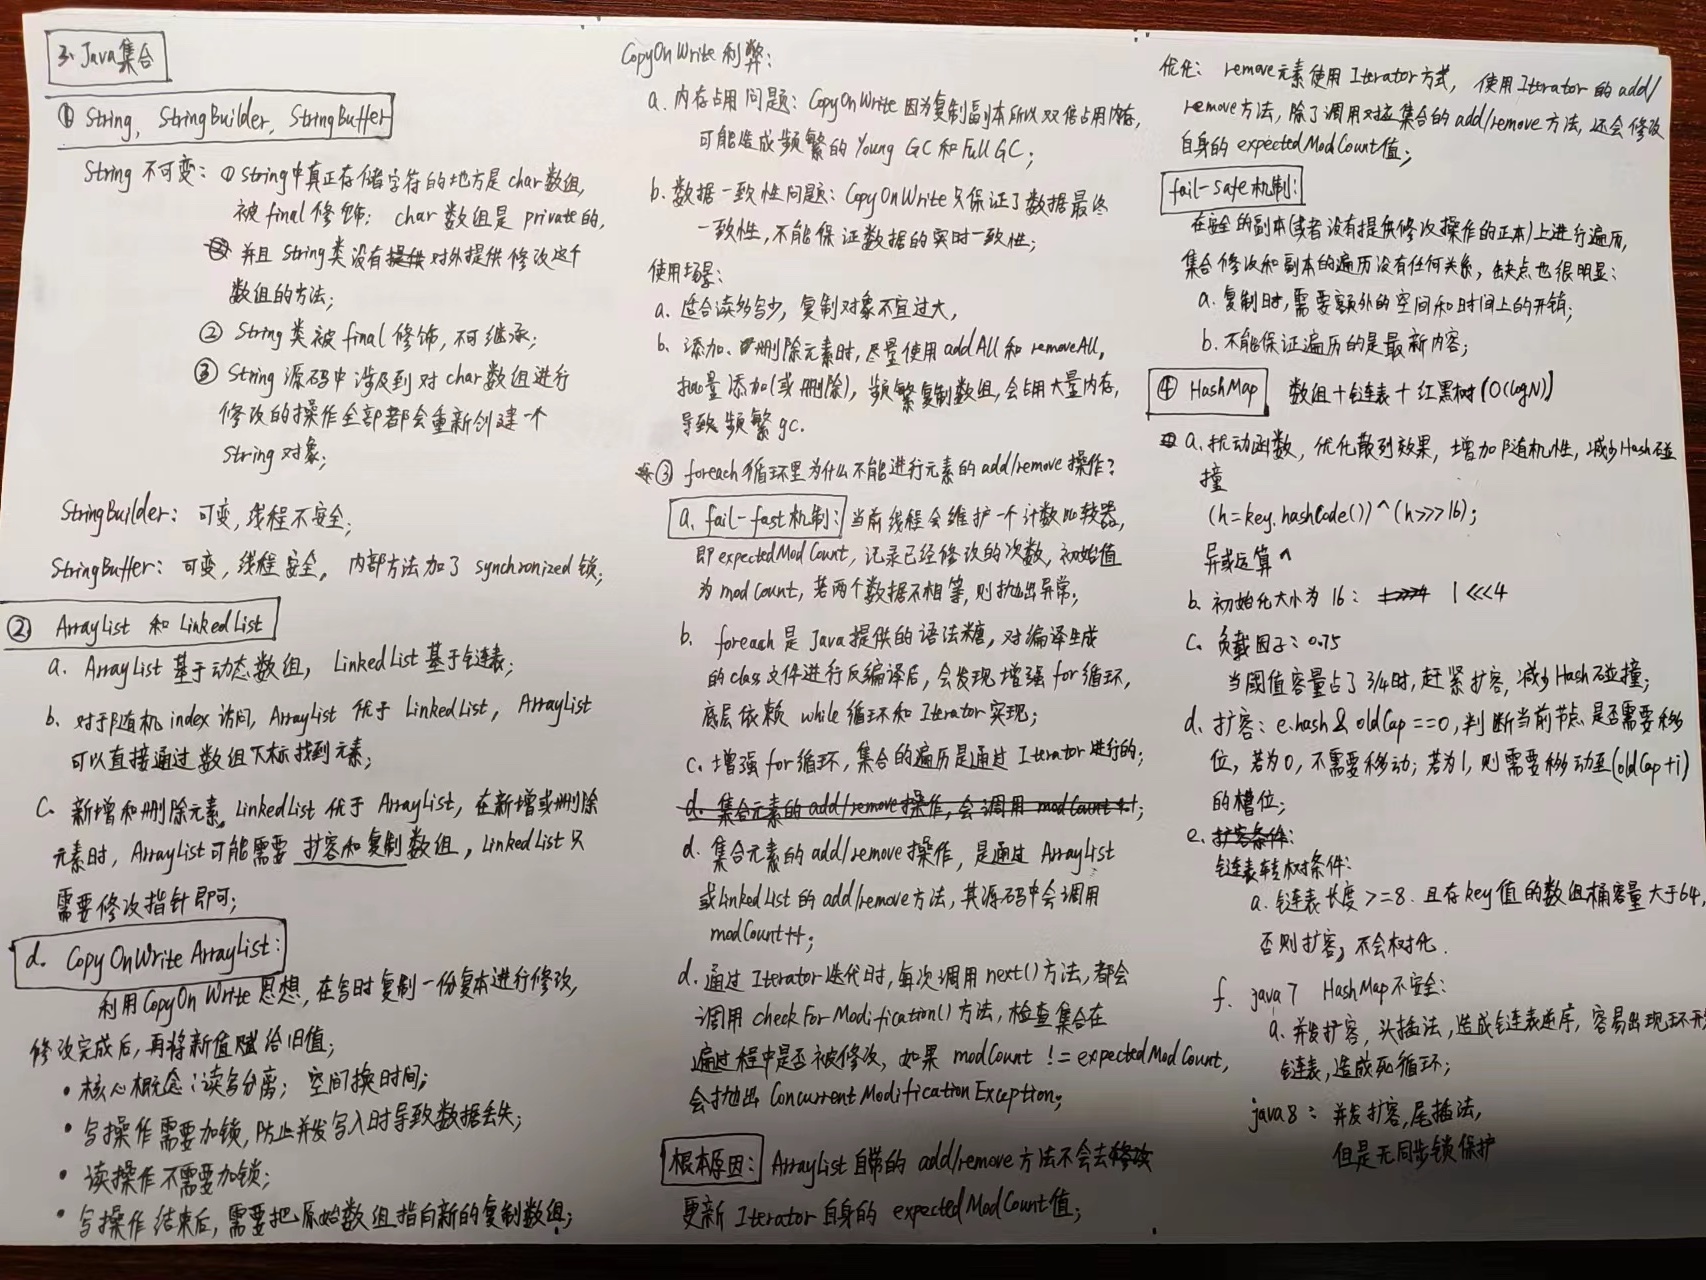 3、Java集合
① String, StringBuilder, StringBuffer
String 不可变: ① String中真正存储字符的地方是 char数组,
被 final 修饰; char 数组是 private的,
并且 String类没有提供对外提供修改这个
数组的方法;
② String 类被 final 修饰, 不可继承;
③ String 源码中涉及到对 char数组进行
修改的操作全部都会重新创建一个
String 对象;
StringBuilder: 可变, 线程不安全;
StringBuffer: 可变, 线程安全, 内部方法加了 synchronized 锁;
② ArrayList 和 LinkedList
a. ArrayList 基于动态数组, LinkedList 基于链表;
b. 对于随机 index 访问, ArrayList 优于 LinkedList, ArrayList
可以直接通过数组下标找到元素;
c. 新增和删除元素, LinkedList 优于 ArrayList, 在新增或删除
元素时, ArrayList 可能需要 扩容和复制数组, LinkedList 只
需要修改指针即可;
d. CopyOnWrite ArrayList:
利用 CopyOn Write 思想, 在写时复制一份复本进行修改,
修改完成后, 再将新值赋给旧值;
• 核心概念: 读写分离; 空间换时间;
• 写操作需要加锁, 防止并发写入时导致数据丢失;
• 读操作不需要加锁;
• 写操作结束后, 需要把原始数组指向新的复制数组;
CopyOnWrite 利弊:
a. 内存占用问题: CopyOnWrite 因为复制副本所以双倍占用内存,
可能造成频繁的 Young GC 和 Full GC;
b. 数据一致性问题: CopyOnWrite 只保证了数据最终
一致性, 不能保证数据的实时一致性;
使用场景:
a. 适合读多写少, 复制对象不宜过大,
b. 添加、删除元素时, 尽量使用 addAll 和 removeAll,
批量添加(或删除), 频繁复制数组, 会占用大量内存,
导致频繁 gc.
③ foreach 循环里为什么不能进行元素的 add/remove 操作?
a. fail-fast机制: 当前线程会维护一个计数比较器,
即 expectedModCount, 记录已经修改的次数, 初始值
为 modCount, 若两个数据不相等, 则抛出异常;
b. foreach 是 Java 提供的语法糖, 对编译生成
的 class 文件进行反编译后, 会发现增强 for 循环,
底层依赖 while 循环和 Iterator 实现;
c. 增强 for 循环, 集合的遍历是通过 Iterator 进行的;
d. 集合元素的 add/remove 操作, 会调用 modCount++;
d. 集合元素的 add/remove 操作, 是通过 ArrayList
或 LinkedList 的 add/remove 方法, 其源码中会调用
modCount++;
d. 通过 Iterator 迭代时, 每次调用 next() 方法, 都会
调用 checkForModification() 方法, 检查集合在
遍过程中是否被修改, 如果 modCount != expectedModCount,
会抛出 ConcurrentModificationException;
根本原因: ArrayList 自带的 add/remove 方法不会去修改
更新 Iterator 自身的 expectedModCount 值;
优化: remove元素使用 Iterator 方式, 使用 Iterator 的 add/
remove 方法, 除了调用对应集合的 add/remove 方法, 还会修改
自身的 expectedModCount值;
fail-safe机制:
在安全的副本(或者没有提供修改操作的正本)上进行遍历,
集合修改和副本的遍历没有任何关系, 缺点也很明显:
a. 复制时, 需要额外的空间和时间上的开销;
b. 不能保证遍历的是最新内容;
④ HashMap 数组+链表+红黑树 (O(logN))
a. 扰动函数, 优化散列效果, 增加随机性, 减少Hash碰
撞
(h=key.hashCode())^(h>>>16);
异或运算 ^
b. 初始化大小为 16: 1<<<4
c. 负载因子: 0.75
当阈值容量占了 3/4时, 赶紧扩容, 减少Hash碰撞;
d. 扩容: e.hash & oldCap ==0, 判断当前节点是否需要移
位, 若为0, 不需要移动; 若为1, 则需要移动至(oldCap+i)
的槽位;
e. 扩容条件:
链表转树条件:
a. 链表长度 >=8. 且存key值的数组桶容量大于64,
否则扩容, 不会树化.
f. java7 HashMap不安全:
a. 并发扩容, 头插法, 造成链表逆序, 容易出现环形
链表, 造成死循环;
java8: 并发扩容, 尾插法,
但是无同步锁保护